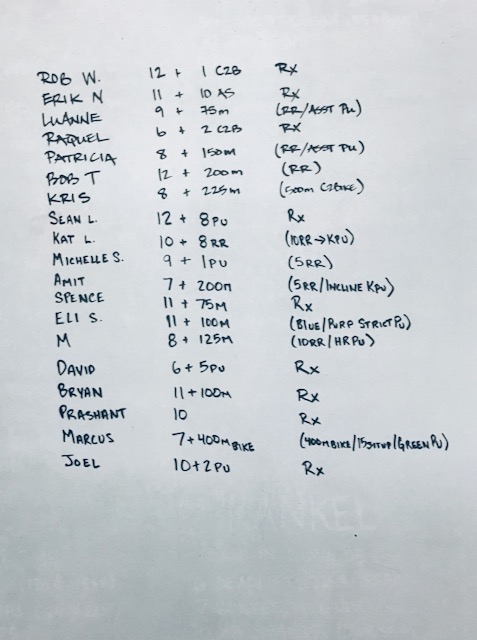 ROB W. 12 + 1 C2B Rx
ERIK N 11 + 10 AS Rx
LUANNE 9 + 75m (RR/ASST PU)
RAQUEL 6 + 2 C2B Rx
PATRICIA 8 + 150m (RR/ASST PU)
BOB T 12 + 200m (RR)
KRIS 8 + 225m (500m C2BIKE)
SEAN L. 12 + 8PU Rx
KAT L. 10 + 8RR (10RR→KPU)
MICHELLE S. 9 + 1PU (5RR)
AMIT 7 + 200m (5RR/INCLINE KPU)
SPENCE 11 + 75M Rx
ELI S. 11 + 100M (BLUE/PURP STRICT PU)
M 8 + 125M (10RR/HRPU)
DAVID 6 + 5PU Rx
BRYAN 11 + 100M Rx
PRASHANT 10 Rx
MARCUS 7 + 400M BIKE (400M BIKE/15 SITUP/GREEN PU)
JOEL 10 + 2 PU Rx